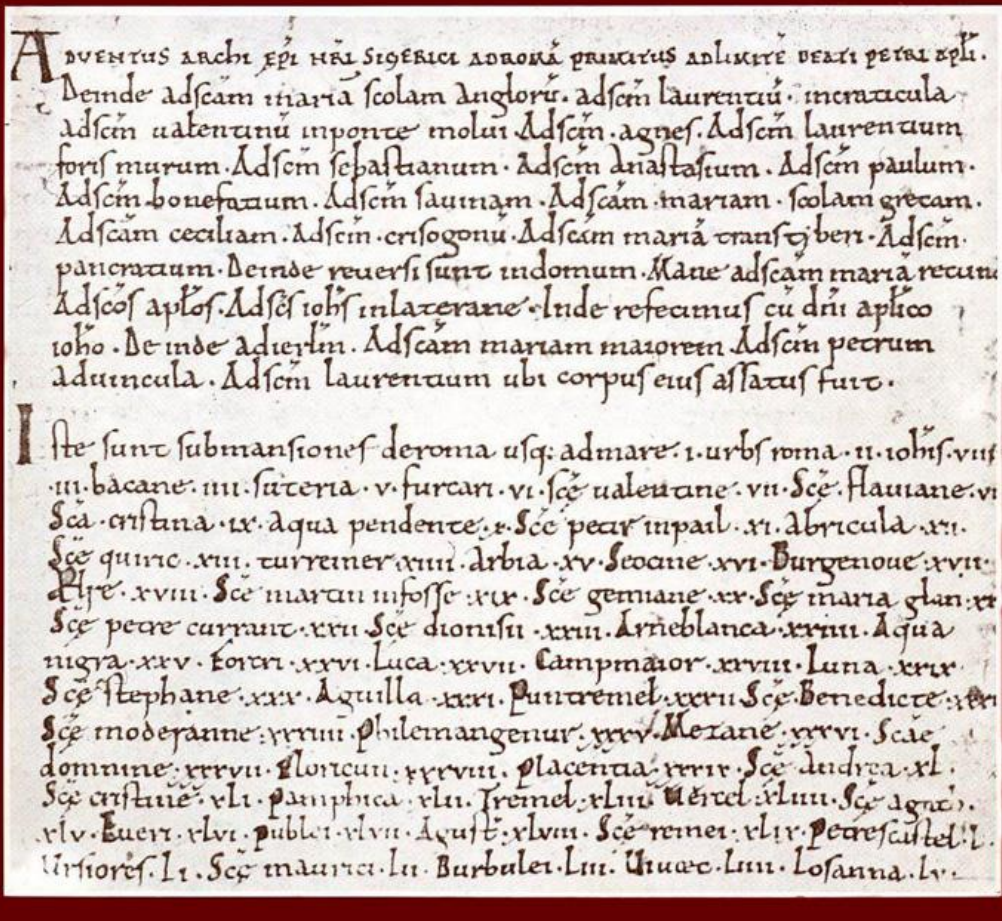 ADVENTUS ARCHI EPI NRI SIGERICI AD ROMĀ PRIMITUS AD LIMITĒ BEATI PETRI APLI.
Deinde adscam maria scolam anglorū. adscm laurentiū. incraticula
adscm ualentinū inponte molui. Adscm. agnes. Adscm laurentium
foris murum. Adscm sebastianum. Adscm anastasium. Adscm paulum.
Adscm. bonefatium. Adscm sauinam. Adscam. mariam. scolam grecam.
Adscam ceciliam. Adscm. crisogonū. Adscam mariā transtyberi. Adscm.
pancratium. Deinde reuersi sunt indomum. Mane adscam mariā rotun
Adscos aplos. Adscs iohs inlaterane. Inde refecimus cū dn̄i aplico
ioho. Deinde adierlm. Adscam mariam maiorem. Adscm petrum
aduincula. Adscm laurentium ubi corpus eius assatus fuit.
Iste sunt submansiones deroma usq; admare. i. urbs roma. ii. iohis. viiii
.iii. bacane. iiii. suteria. v. furcari. vi. sce ualentine. vii. Sce. flauiane. vi
Sca. cristina. ix. aqua pendente. x. Sce petir inpail. xi. abricula. xii.
Sce quiric. xiii. turreiner. xiiii. Arbia. xv. Seocine. xvi. Burgenoue. xvii.
Ælse. xviii. Sce martin infosse. xix. Sce gemiane. xx. Sce maria glan. xx
Sce petre currant. xxii. Sce dionisii. xxiii. Arneblanca. xxiiii. Aqua
nigra. xxv. forcri. xxvi. Luca. xxvii. Campmaior. xxviii. Luna. xxix.
Sce stephane. xxx. Aguilla. xxxi. Puntremel. xxxii. Sce. Benedicte. xxxi
Sce moderanne. xxxiiii. Philemangenur. xxxv. Metane. xxxvi. Scae
domnine. xxxvii. floricun. xxxviii. placentia. xxxix. Sce Andrea. xl.
Sce cristine. xli. pamphica. xlii. Tremel. xliii. Uercel. xliiii. Sce agath.
xlv. Eueri. xlvi. publei. xlvii. Agust. xlviii. Sce remei. xlix. petrescastel. l.
Ursiores. Li. Sce maurici. lii. Burbulei. Liii. Uiuaec. Liiii. Losanna. lv.